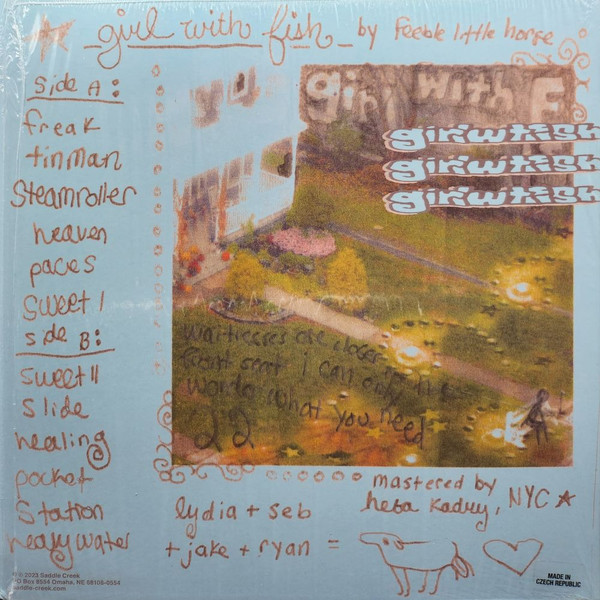 girl with fish by feeble little horse
Side A:
freak
tinman
Steamroller
heaven
paces
Sweet I
Side B:
Sweet II
Slide
healing
pocket
Station
heavy water
girl with F
girlwfish
girlwfish
girlwfish
waitresses are closer in the
front seat i can only
words what you need
22
mastered by
heba Kadry, NYC
lydia + seb
+ jake + ryan =
© 2023 Saddle Creek
PO Box 8554 Omaha, NE 68108-0554
saddle-creek.com
MADE IN
CZECH REPUBLIC